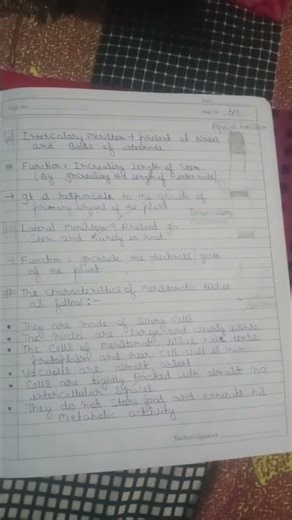 Page No.
Date
Apical meristem
(ii) Intercalary Meristem → present at Nodes
and Base of internode
# Function = Increasing length of Stem
(By Increasing the length of inter node)
→ It is responsible for the growth of
primary of the plant
Intercalary
(iii) Lateral Meristem → Present in
Stem and Rarely in root
→ Function = increase the thickness/girth
of the plant
# The Characteristics of Meristematic tissue
as follow:-
• They are made of living cells
• Their nuclei are large and clearly visible
• The cells of meristematic tissue have dense
protoplasm and their cell wall is thin
• Vacuoles are almost absent
• Cells are tightly packed with almost no
intercellular spaces
• They do not store food and exhibit
metabolic activity
Teacher's Signature